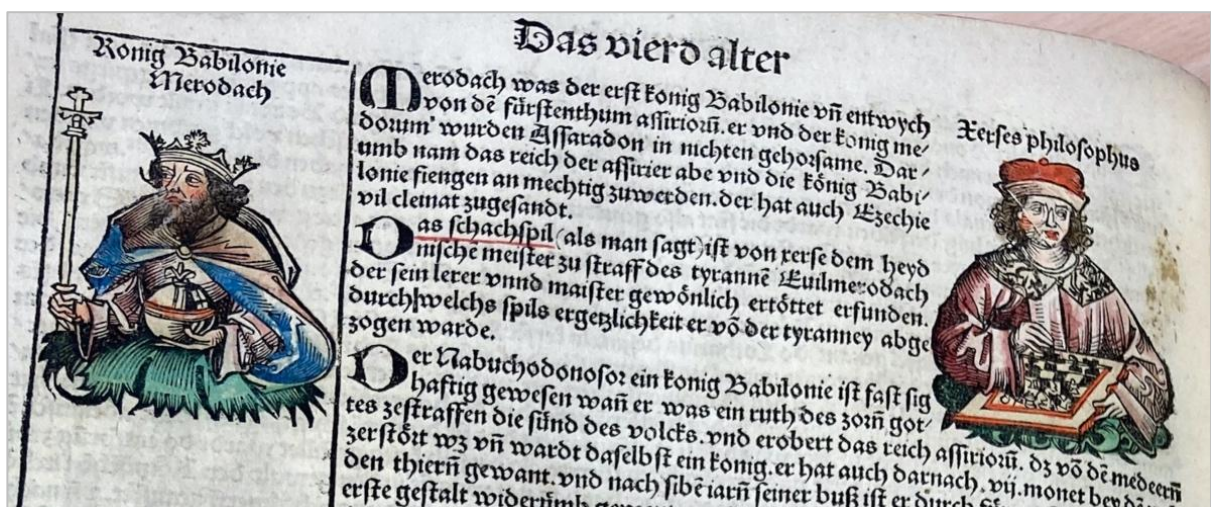 Das vierd alter
Konig Babilonie
Merodach
Merodach was der erst kőnig Babilonie vñ entwych
von dē fürstenthum assirioꝝ. er vnd der konig me/
dorum wurden Assaradon in nichten gehorsame. Dar/
umb nam das reich der assirier abe vnd die kőnig Babi/
lonie fiengen an mechtig zuwerden. der hat auch Ezechie
vil cleinat zugesandt.
Das schachspil (als man sagt) ist von xerse dem heyd
nischē meister zu straff des tyrannē Euilmerodach
der sein lerer vnnd maister gewőnlich ertőttet erfunden.
durch welchs spils ergetzlichkeit er vō der tyranney abge
zogen warde.
Der Nabuchodonosor ein konig Babilonie ist fast sig
haftig gewesen wañ er was ein ruth des zorñ got/
tes zestraffen die sünd des volcks. vnd erobert das reich assirioꝝ. dz vō dē medeern
zerstőrt wz vñ wardt daselbst ein kőnig. er hat auch darnach. vij. monet bey dē
den thierñ gewant. vnd nach sibē iarñ seiner buß ist er durch
erste gestalt widerümb
Xerses philosophus